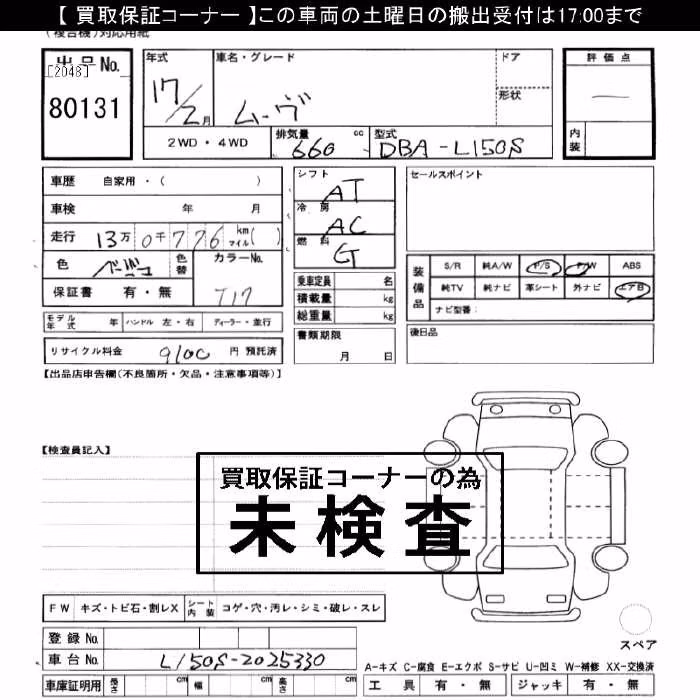 【 買取保証コーナー 】この車両の土曜日の搬出受付は17:00まで
(複合機)対応用紙
出品No.
[2048]
80131
年式 17/2月
車名・グレード
ムーヴ
ドア
形状
評価点
内装
2WD・4WD
排気量 660 cc
型式 DBA-L150S
車歴 自家用・( )
車検 年 月
走行 13万0千776 km マイル( )
色 ベージュ 色替
カラーNo. T17
保証書 有・無
シフト AT
冷房 AC
燃料 G
乗車定員 名
積載量 kg
総重量 kg
書類期限 月 日
セールスポイント
装備品
S/R 純A/W P/S P/W ABS
純TV 純ナビ 革シート 外ナビ エアB
ナビ型番:
後日品
モデル年式 年 ハンドル 左・右 ディーラー・並行
リサイクル料金 9100 円 預託済
【出品店申告欄(不良箇所・欠品・注意事項等)】
【検査員記入】
買取保証コーナーの為
未検査
FW キズ・トビ石・割レX シート内装 コゲ・穴・汚レ・シミ・破レ・スレ
スペア
登録No.
車台No. L150S-2025330
車庫証明用 長さ cm 幅 cm 高さ cm
A-キズ C-腐食 E-エクボ S-サビ U-凹ミ W-補修 XX-交換済
工具 有・無 ジャッキ 有・無